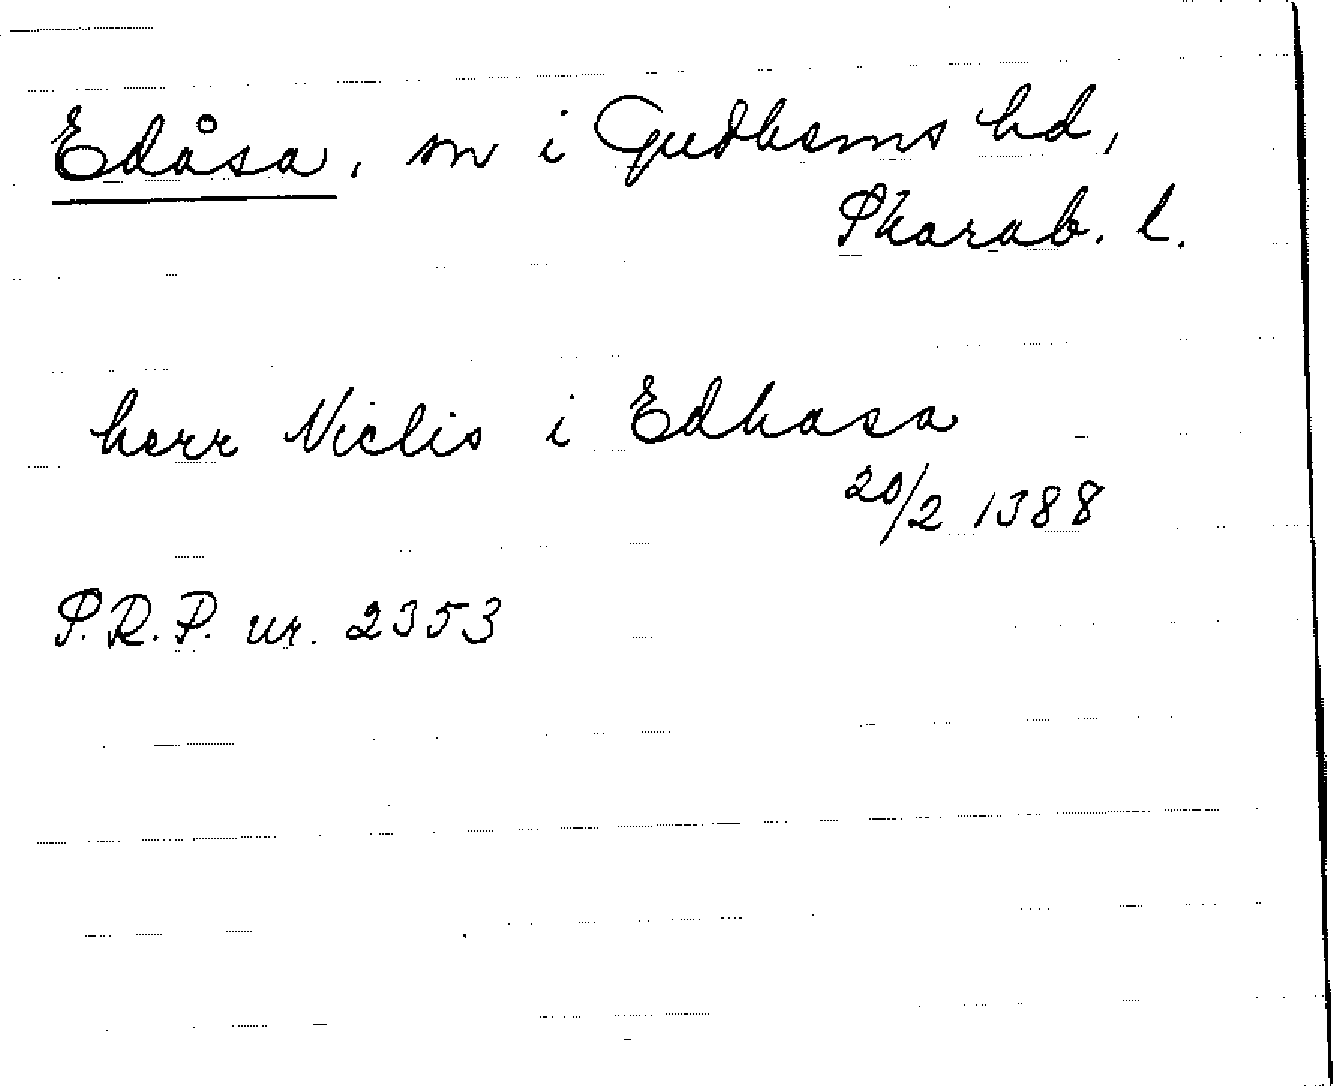 Edåsa, sn i Gudhems hd,
Skarab. l.
herr Niclis i Edhasa
20/2 1388
P.R.P. nr. 2353